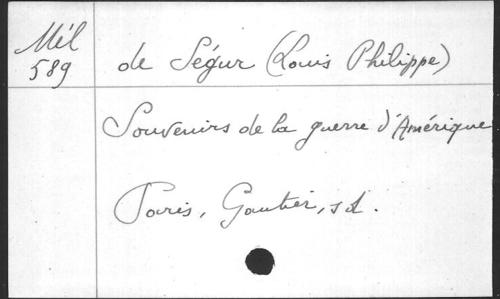 Mél
589
de Ségur (Louis Philippe)
Souvenirs de la guerre d'Amérique
Paris, Gautier, sd.